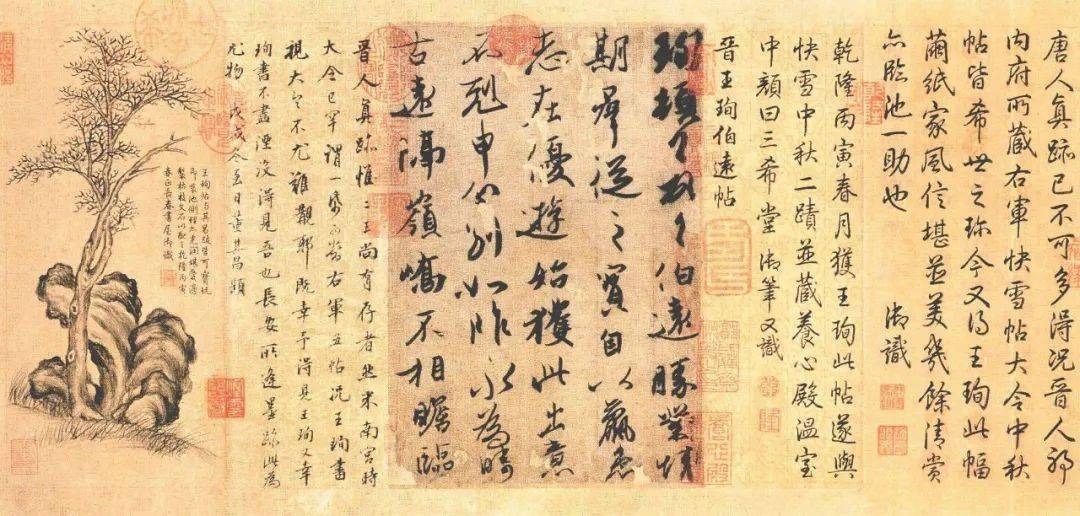 唐人真跡已不可多得況晉人耶
內府所藏右軍快雪帖大令中秋
帖皆希世之珍今又得王珣此幅
繭紙家風信堪並美幾餘清賞
亦臨池一助也 御識
乾隆丙寅春月獲王珣此帖遂與
快雪中秋二蹟並藏養心殿溫室
中顏曰三希堂 御筆又識
晉王珣伯遠帖
珣頓首頓首伯遠勝業情
期群從之寶自以羸患
志在優遊始獲此出意
不剋申分別如昨永為疇
古遠隔嶺嶠不相瞻臨
晉人真跡惟二王尚有存者然米南宮時
大令已罕謂一紙可當右軍五帖況王珣書
視大令不尤難覯耶既幸予得見王珣又幸
珣書不盡湮沒得見吾也長安所逢墨跡此為
尤物 戊戌冬至日董其昌題
王珣帖與其昌跋皆可寶玩
即裝池側理亦光潤堪愛適
製枯枝文石以配之乾隆丙寅
春正長春書屋御識